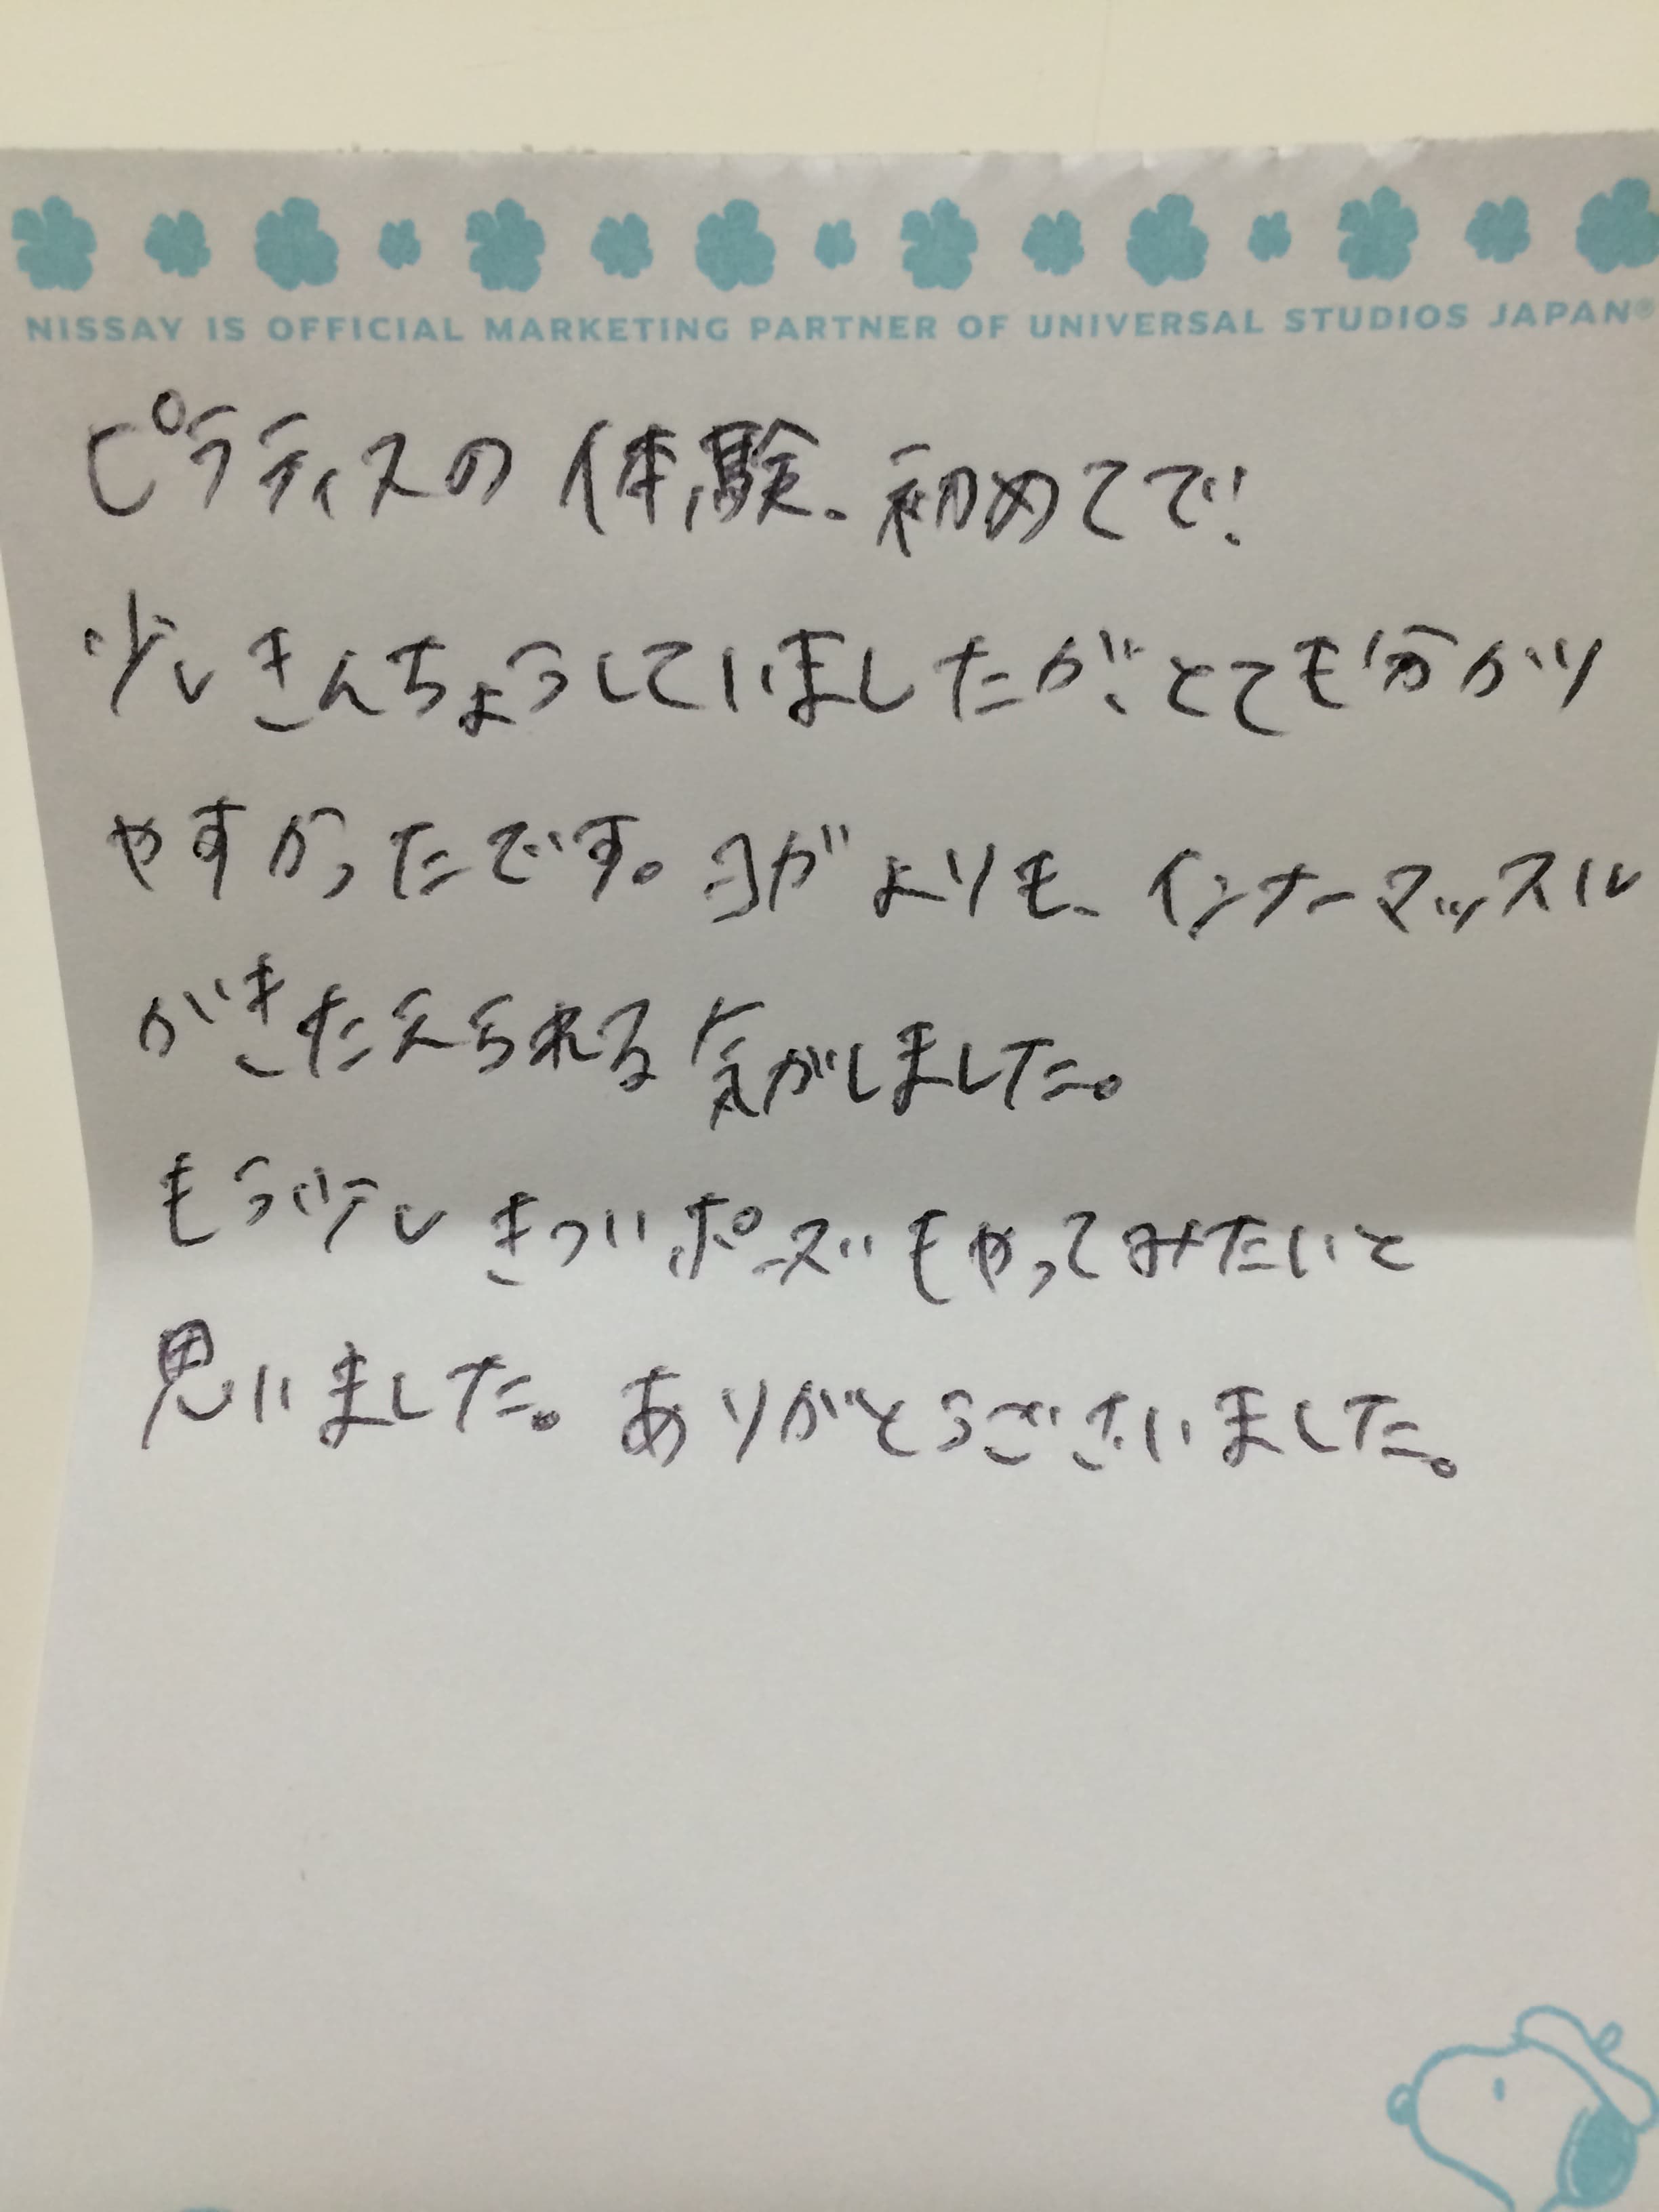 NISSAY IS OFFICIAL MARKETING PARTNER OF UNIVERSAL STUDIOS JAPAN®
ピラティスの体験、初めてで、
少しきんちょうしていましたが、とても分かり
やすかったです。ヨガよりも、インナーマッスル
がきたえられる気がしました。
もう少しきついポーズもやってみたいと
思いました。ありがとうございました。